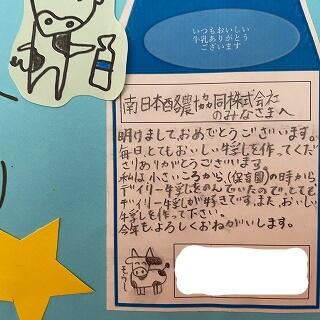 いつもおいしい
牛乳ありがとう
ございます
南日本酪農協同株式会社
のみなさまへ
明けまして、おめでとうございます。
毎日、とてもおいしい牛乳を作ってくだ
さりありがとうございます。
私は、小さいころから、(保育園)の時から
デイリー牛乳をのんでいたので、とても
デイリー牛乳が好きです。また、おいしい
牛乳を作って下さい。
今年も、よろしくおねがいします。
モウ〜